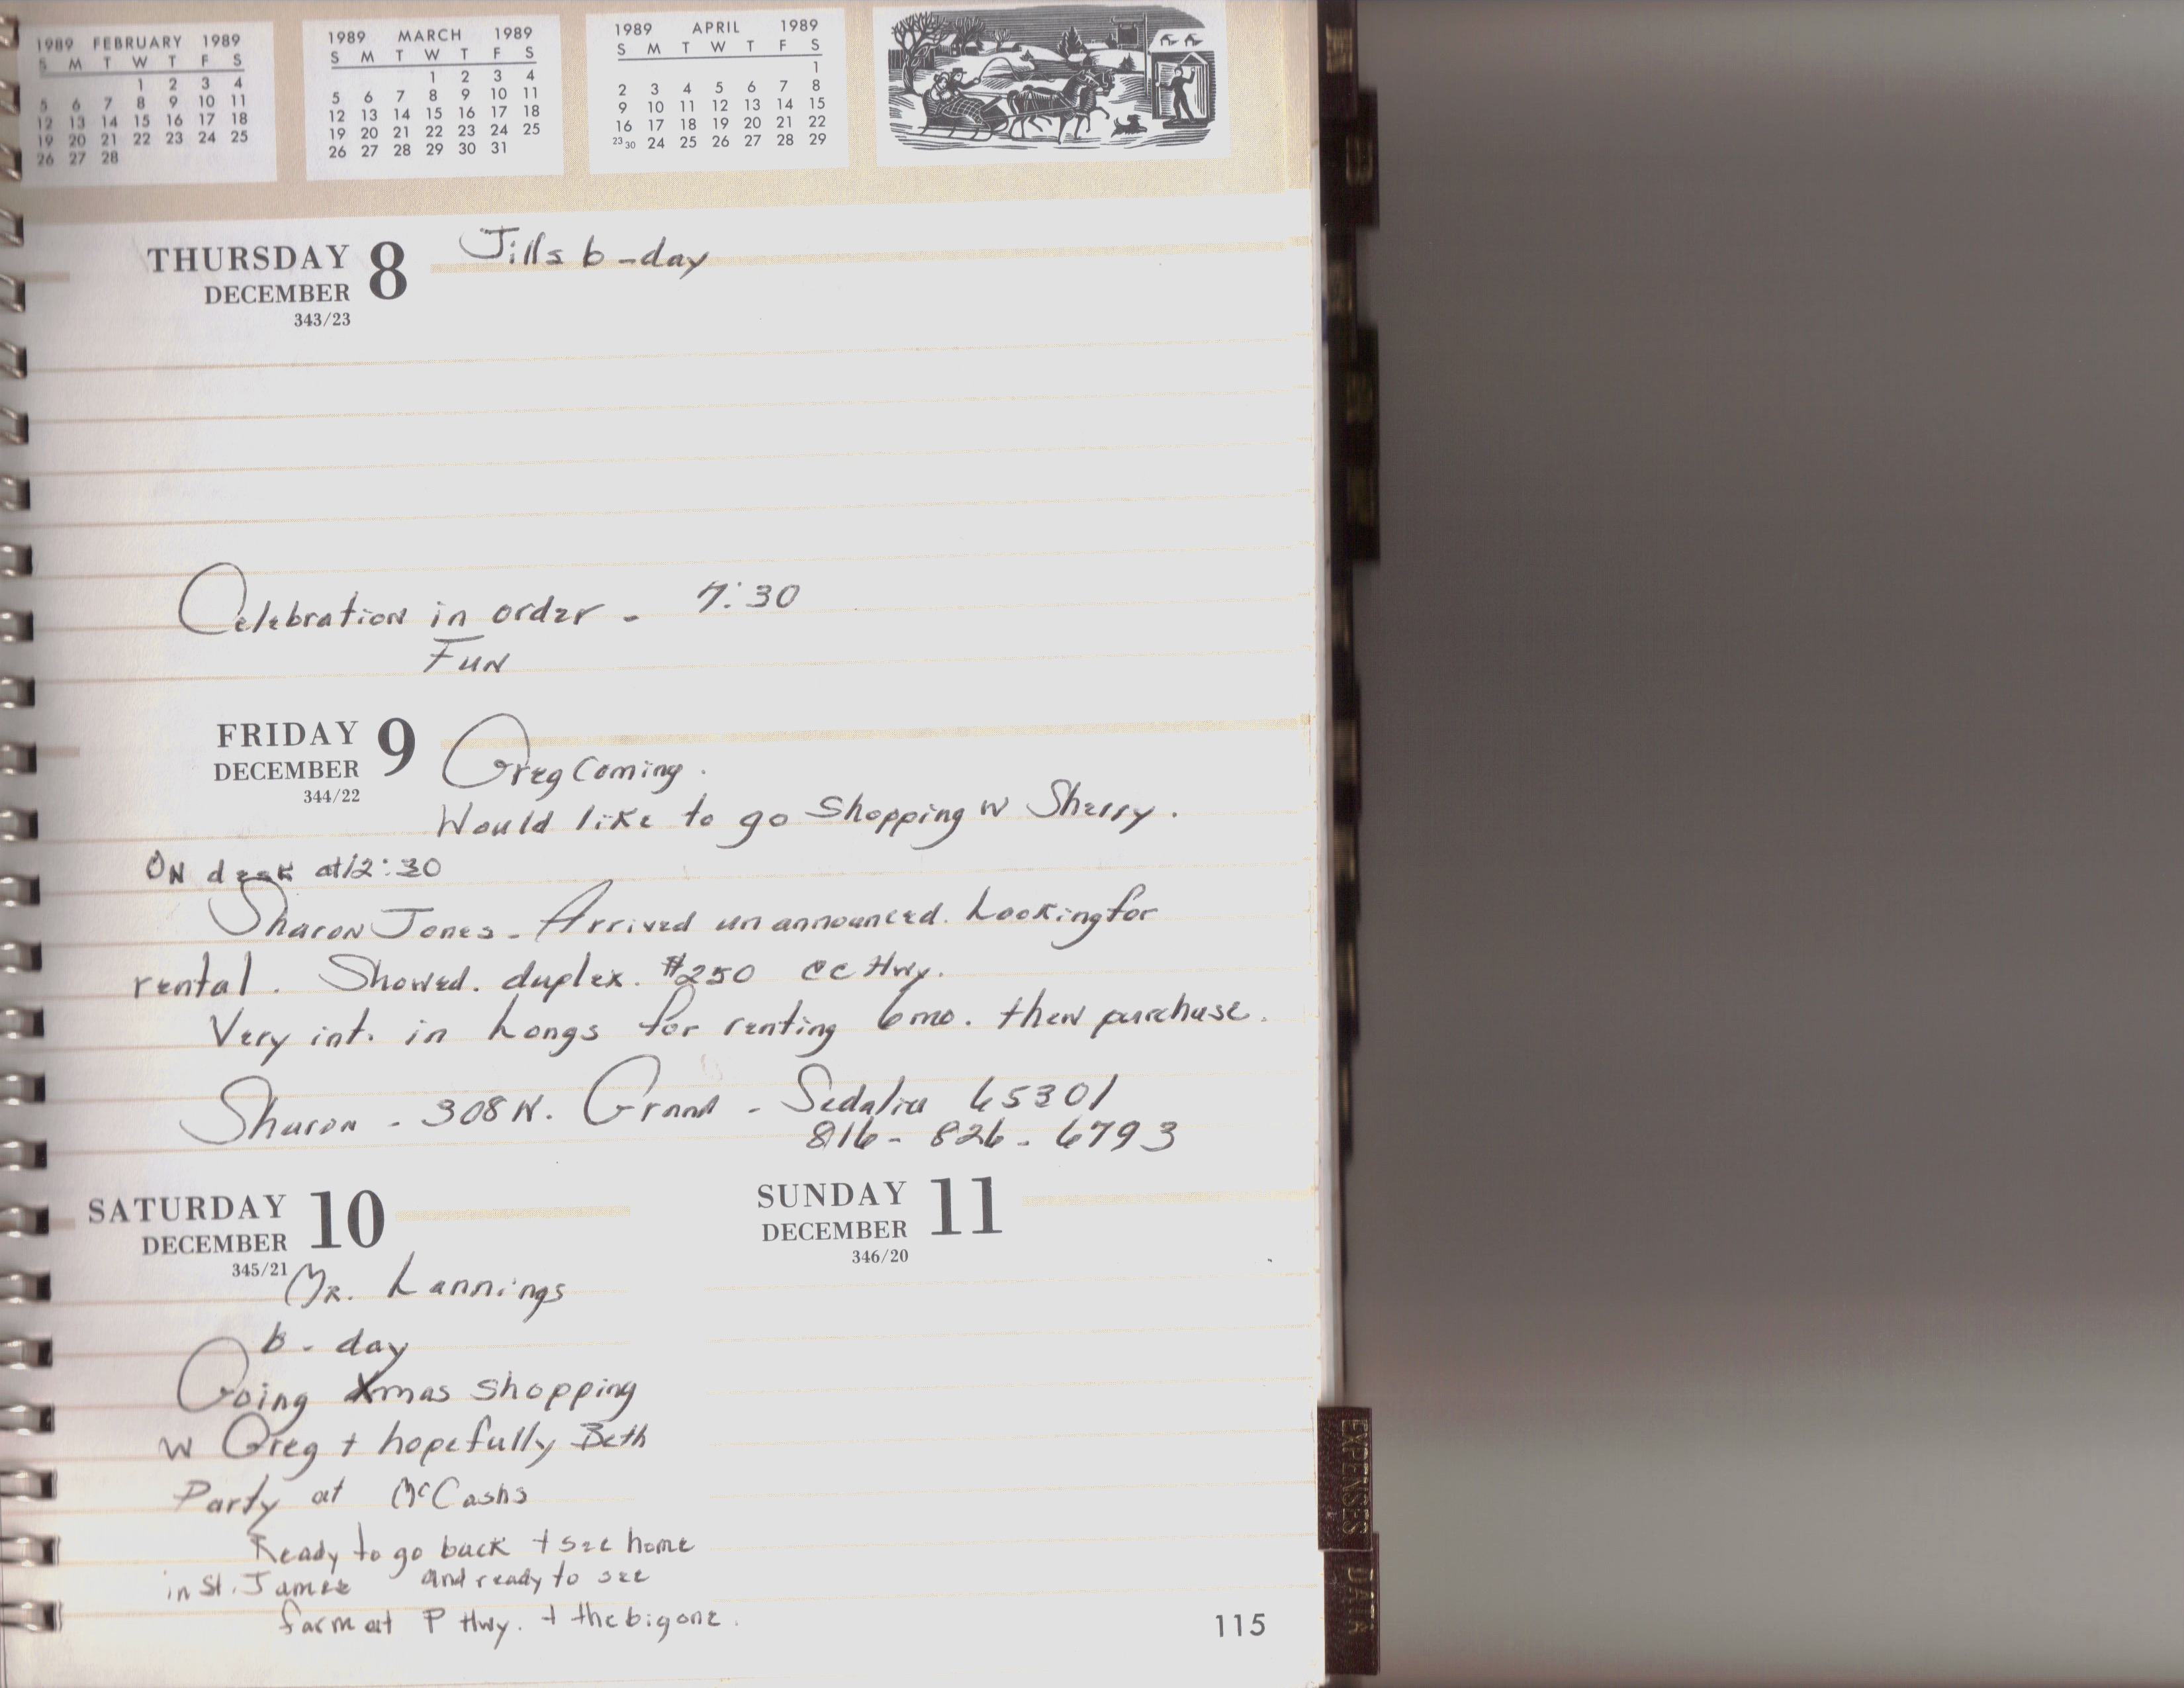 1989 FEBRUARY 1989
S M T W T F S
1 2 3 4
5 6 7 8 9 10 11
12 13 14 15 16 17 18
19 20 21 22 23 24 25
26 27 28
1989 MARCH 1989
S M T W T F S
1 2 3 4
5 6 7 8 9 10 11
12 13 14 15 16 17 18
19 20 21 22 23 24 25
26 27 28 29 30 31
1989 APRIL 1989
S M T W T F S
1
2 3 4 5 6 7 8
9 10 11 12 13 14 15
16 17 18 19 20 21 22
23 30 24 25 26 27 28 29
THURSDAY 8 Jills b-day
DECEMBER
343/23
Celebration in order - 7:30
Fun
FRIDAY 9
DECEMBER Greg Coming.
344/22
Would like to go Shopping w Sherry.
ON desk at 12:30
Sharon Jones - Arrived unannounced. Looking for
rental. Showed. duplex. $250 CC Hwy.
Very int. in Longs for renting 6 mo. then purchase.
Sharon - 308 W. Grand - Sedalia 65301
816-826-6793
SATURDAY 10
DECEMBER
345/21
Mr. Lannings
b-day
Going Xmas shopping
w Greg + hopefully Beth
Party at McCashs
Ready to go back + see home
in St. James and ready to see
farm at P Hwy. + the big one.
SUNDAY 11
DECEMBER
346/20
115
EXPENSES
DATA